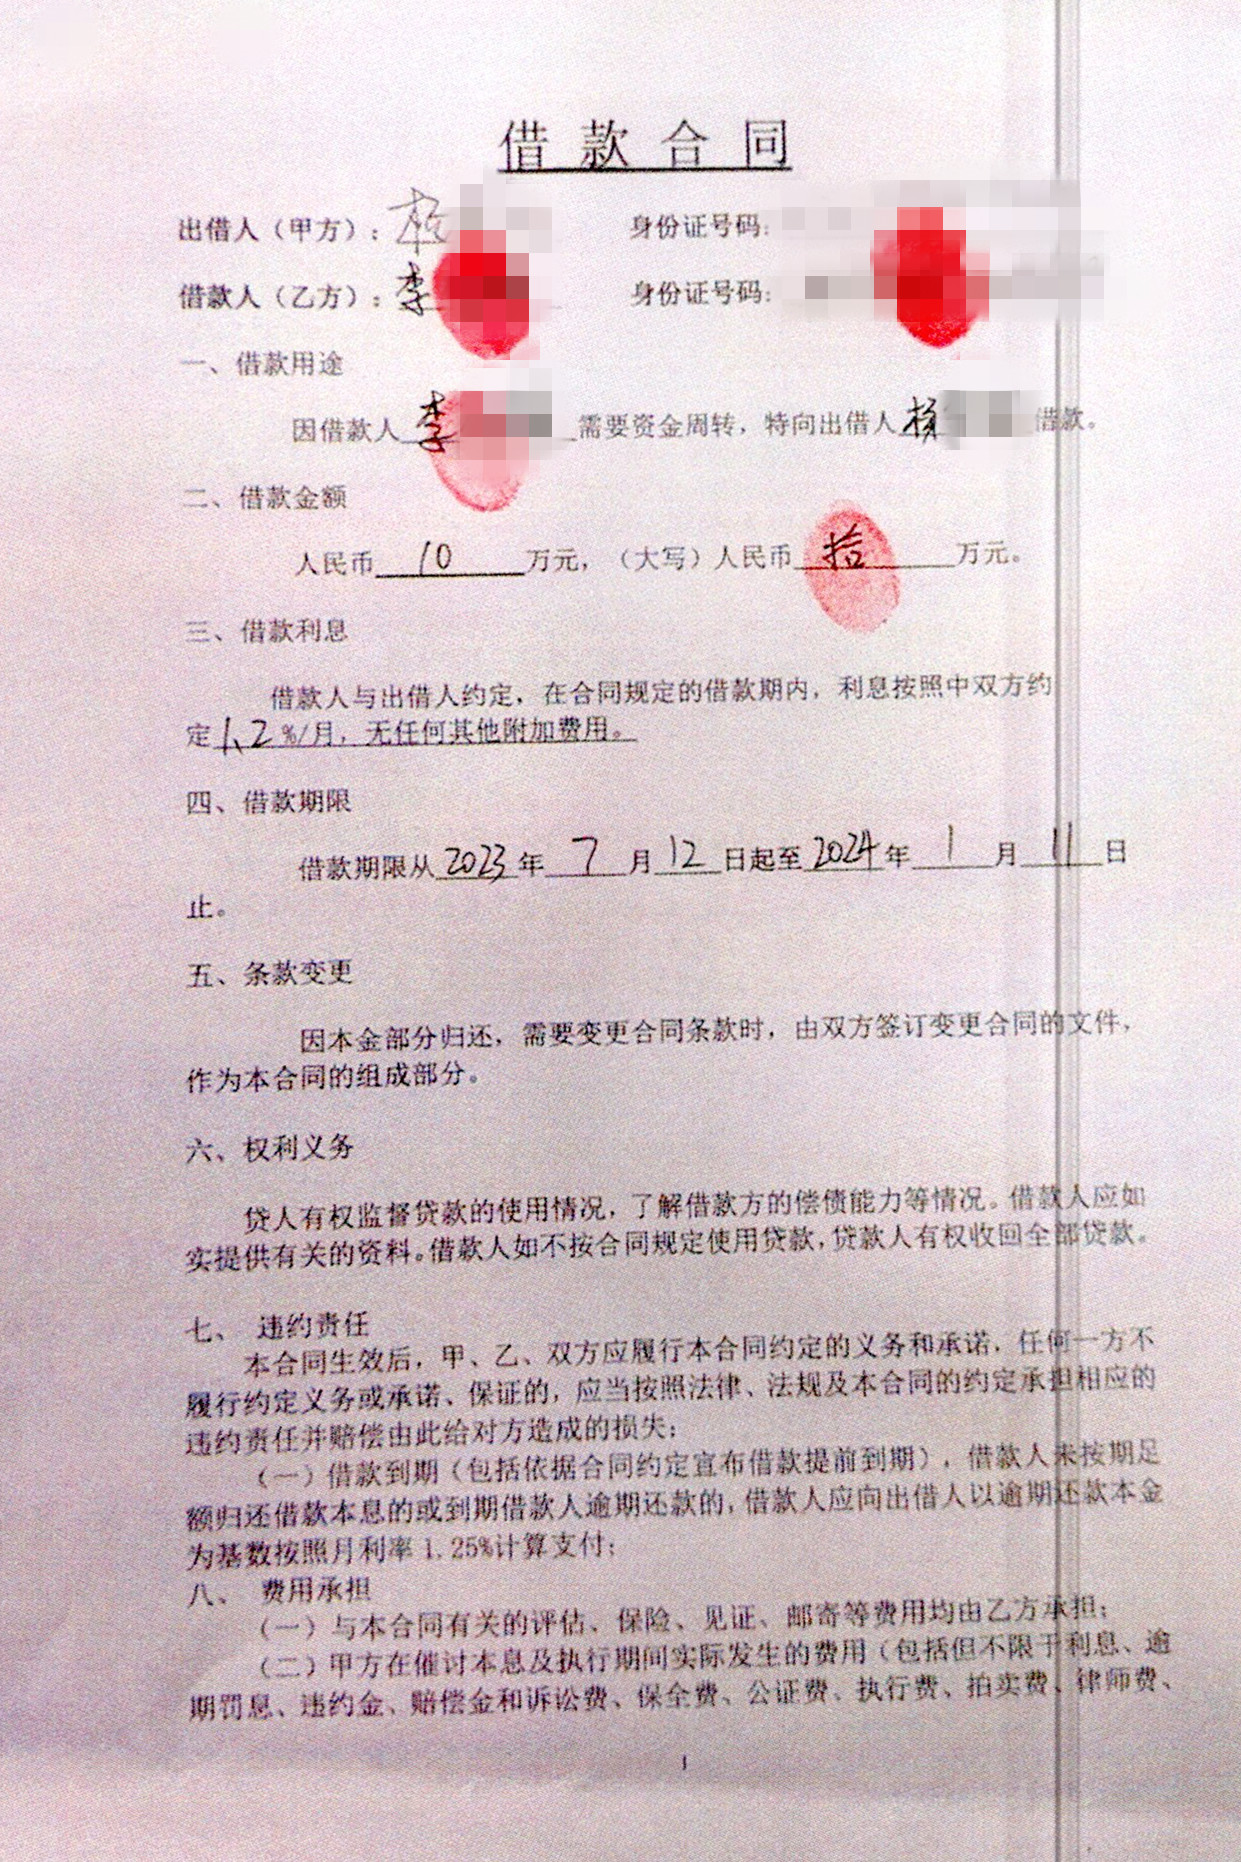 借款合同
出借人（甲方）：杨 身份证号码：
借款人（乙方）：李 身份证号码：
一、借款用途
因借款人李 需要资金周转，特向出借人杨 借款。
二、借款金额
人民币 10 万元，（大写）人民币 拾 万元。
三、借款利息
借款人与出借人约定，在合同规定的借款期内，利息按照中双方约
定1.2%/月，无任何其他附加费用。
四、借款期限
借款期限从2023年 7 月12日起至2024年 1 月 11 日
止。
五、条款变更
因本金部分归还，需要变更合同条款时，由双方签订变更合同的文件，
作为本合同的组成部分。
六、权利义务
贷人有权监督贷款的使用情况，了解借款方的偿债能力等情况。借款人应如
实提供有关的资料。借款人如不按合同规定使用贷款，贷款人有权收回全部贷款。
七、 违约责任
本合同生效后，甲、乙、双方应履行本合同约定的义务和承诺，任何一方不
履行约定义务或承诺、保证的，应当按照法律、法规及本合同的约定承担相应的
违约责任并赔偿由此给对方造成的损失；
（一）借款到期（包括依据合同约定宣布借款提前到期），借款人未按期足
额归还借款本息的或到期借款人逾期还款的，借款人应向出借人以逾期还款本金
为基数按照月利率1.25%计算支付；
八、 费用承担
（一）与本合同有关的评估、保险、见证、邮寄等费用均由乙方承担；
（二）甲方在催讨本息及执行期间实际发生的费用（包括但不限于利息、逾
期罚息、违约金、赔偿金和诉讼费、保全费、公证费、执行费、拍卖费、律师费、
1